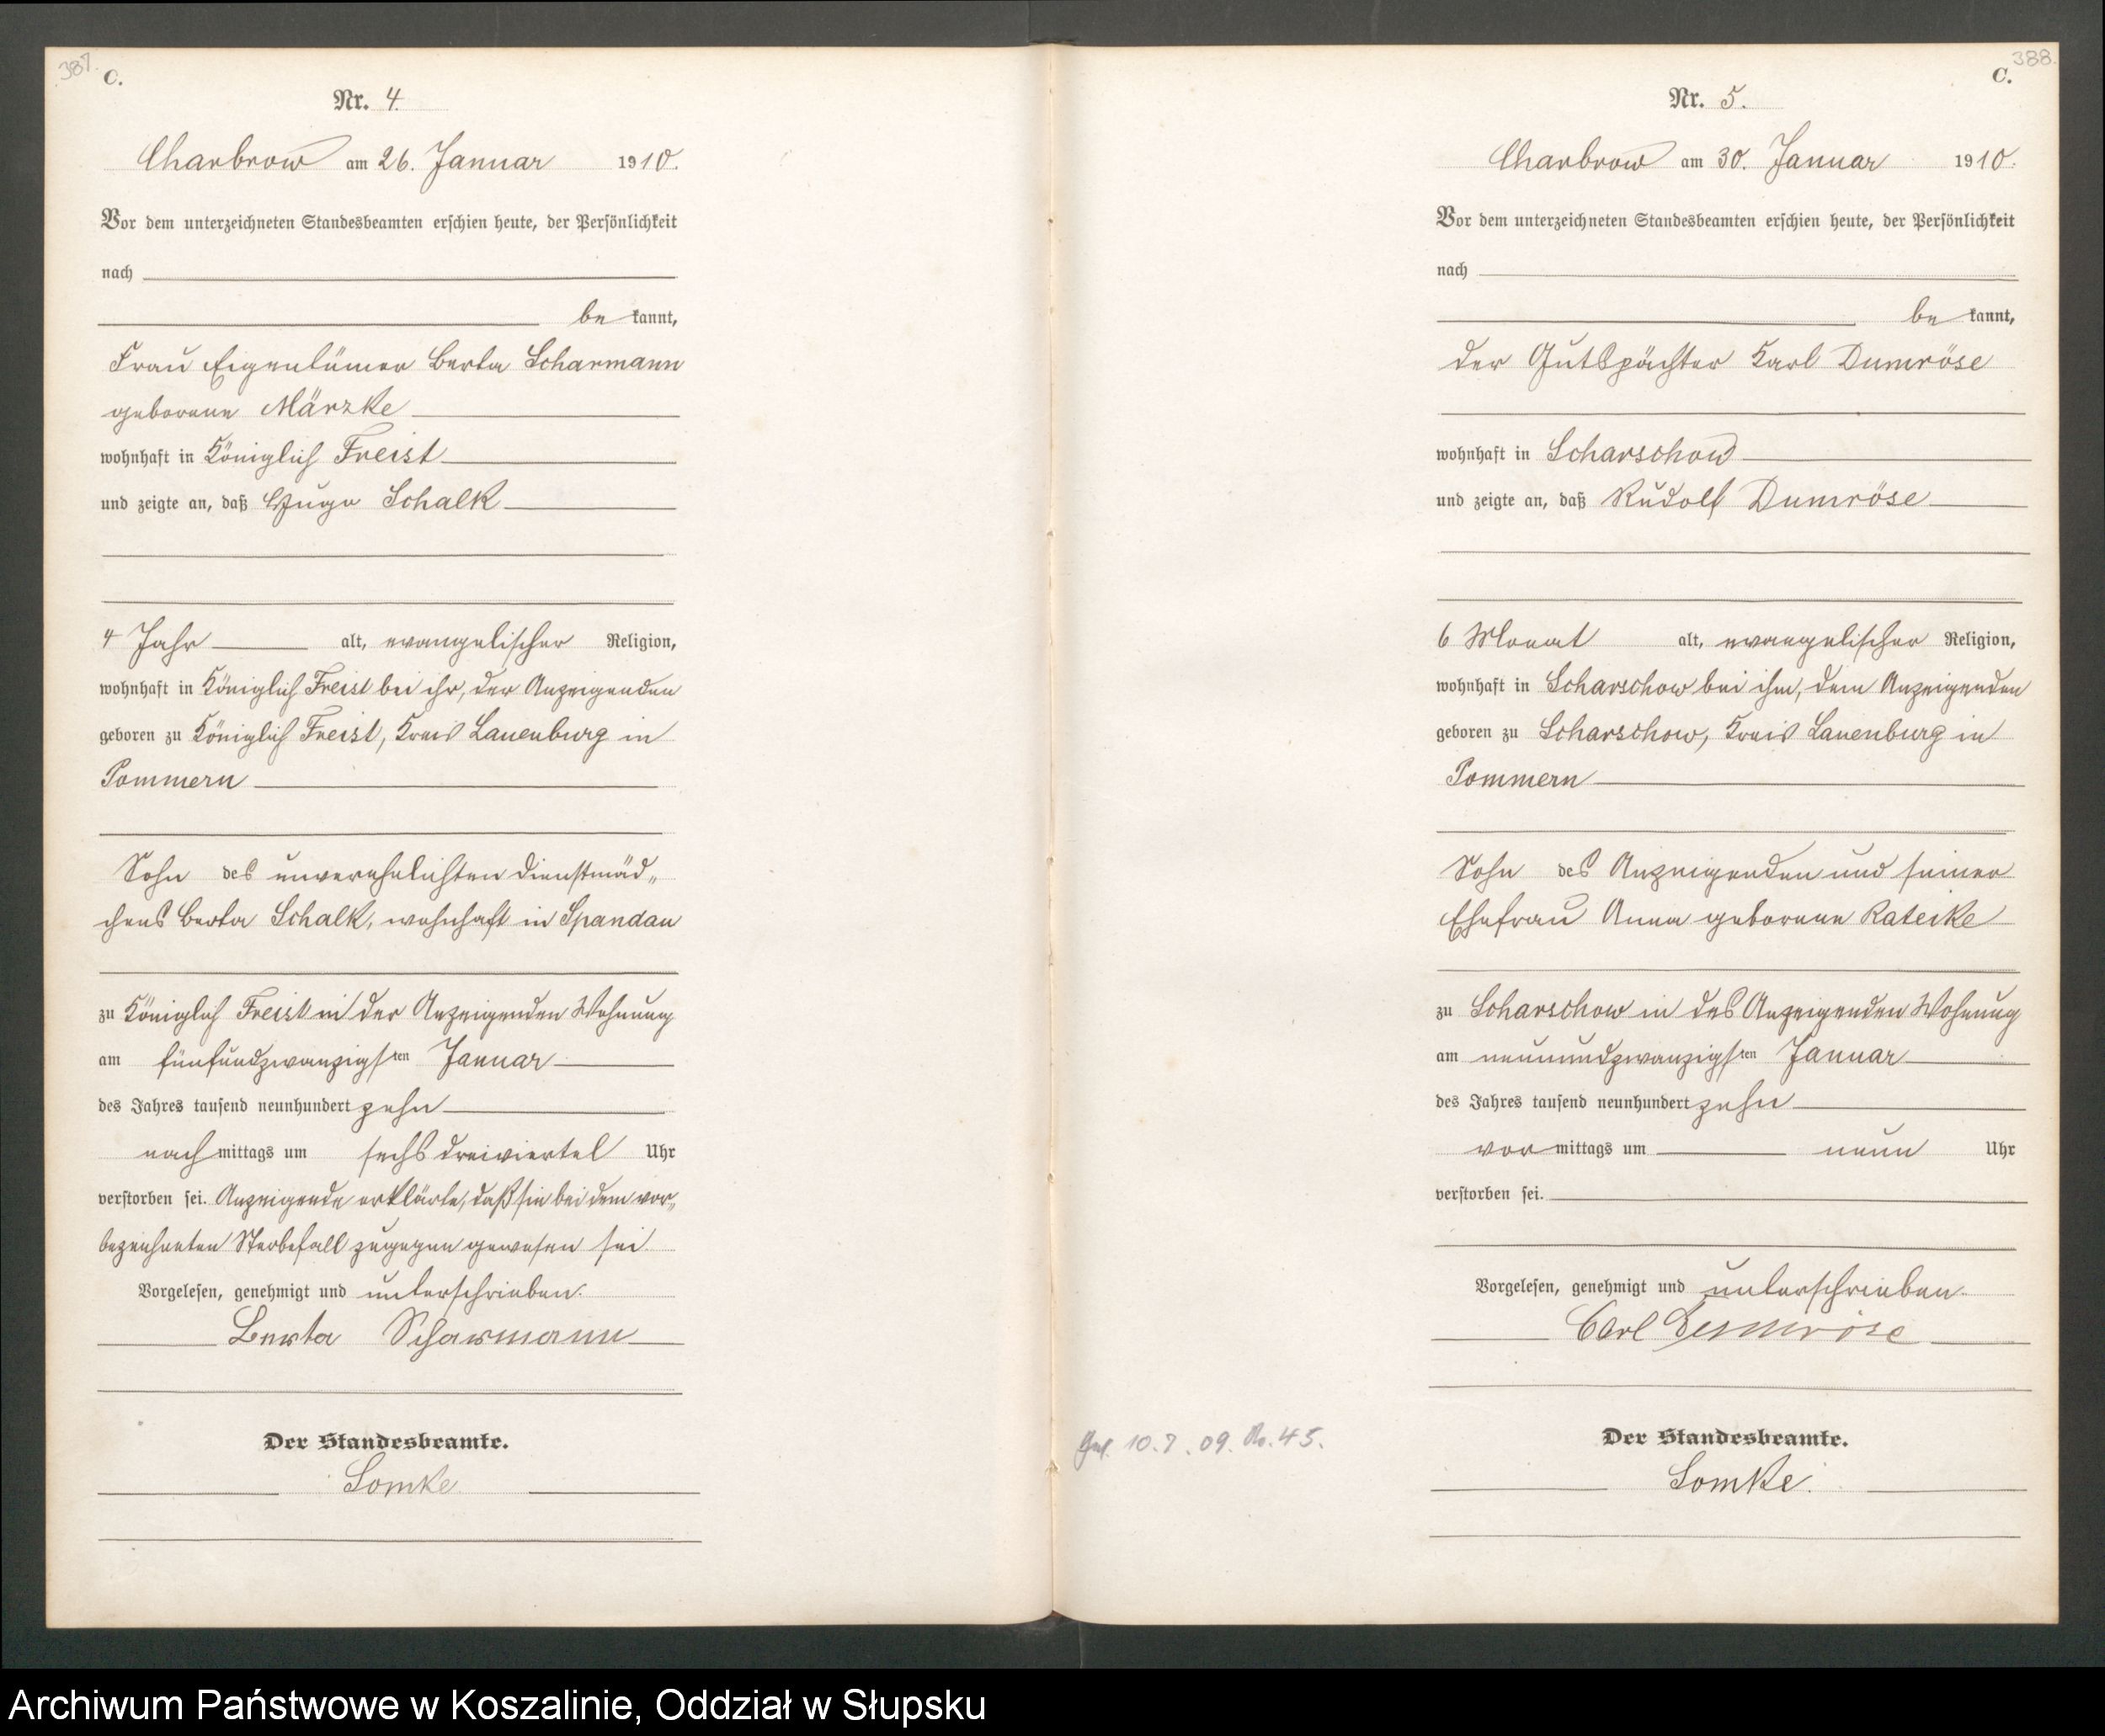 387.
C.
Nr. 4.
Charbrow am 26. Januar 1910.
Vor dem unterzeichneten Standesbeamten erschien heute, der Persönlichkeit
nach
be kannt,
Frau Eigentümer Berta Scharmann
geborene Märzke
wohnhaft in Königlich Freist
und zeigte an, daß Hugo Schalk
4 Jahr alt, evangelischer Religion,
wohnhaft in Königlich Freist bei ihr, der Anzeigenden
geboren zu Königlich Freist, Kreis Lauenburg in
Pommern
Sohn des unverehelichten Dienstmäd„
chens Berta Schalk, wohnhaft in Spandau
zu Königlich Freist in der Anzeigenden Wohnung
am fünfundzwanzigsten Januar
des Jahres tausend neunhundert zehn
nach mittags um sechs dreiviertel Uhr
verstorben sei. Anzeigende erklärte, daß sie bei dem vor„
bezeichneten Sterbefall zugegen gewesen sei.
Vorgelesen, genehmigt und unterschrieben.
Berta Scharmann
Der Standesbeamte.
Lomke
388.
C.
Nr. 5.
Charbrow am 30. Januar 1910.
Vor dem unterzeichneten Standesbeamten erschien heute, der Persönlichkeit
nach
be kannt,
der Gutspächter Karl Dumröse
wohnhaft in Scharschow
und zeigte an, daß Rudolf Dumröse
6 Monat alt, evangelischer Religion,
wohnhaft in Scharschow bei ihm, dem Anzeigenden
geboren zu Scharschow, Kreis Lauenburg in
Pommern
Sohn des Anzeigenden und seiner
Ehefrau Anna geborene Rateike
zu Scharschow in des Anzeigenden Wohnung
am neunundzwanzigsten Januar
des Jahres tausend neunhundert zehn
vor mittags um neun Uhr
verstorben sei.
Vorgelesen, genehmigt und unterschrieben.
Carl Dumröse
Geb. 10.7.09. No. 45.
Der Standesbeamte.
Lomke.
Archiwum Państwowe w Koszalinie, Oddział w Słupsku